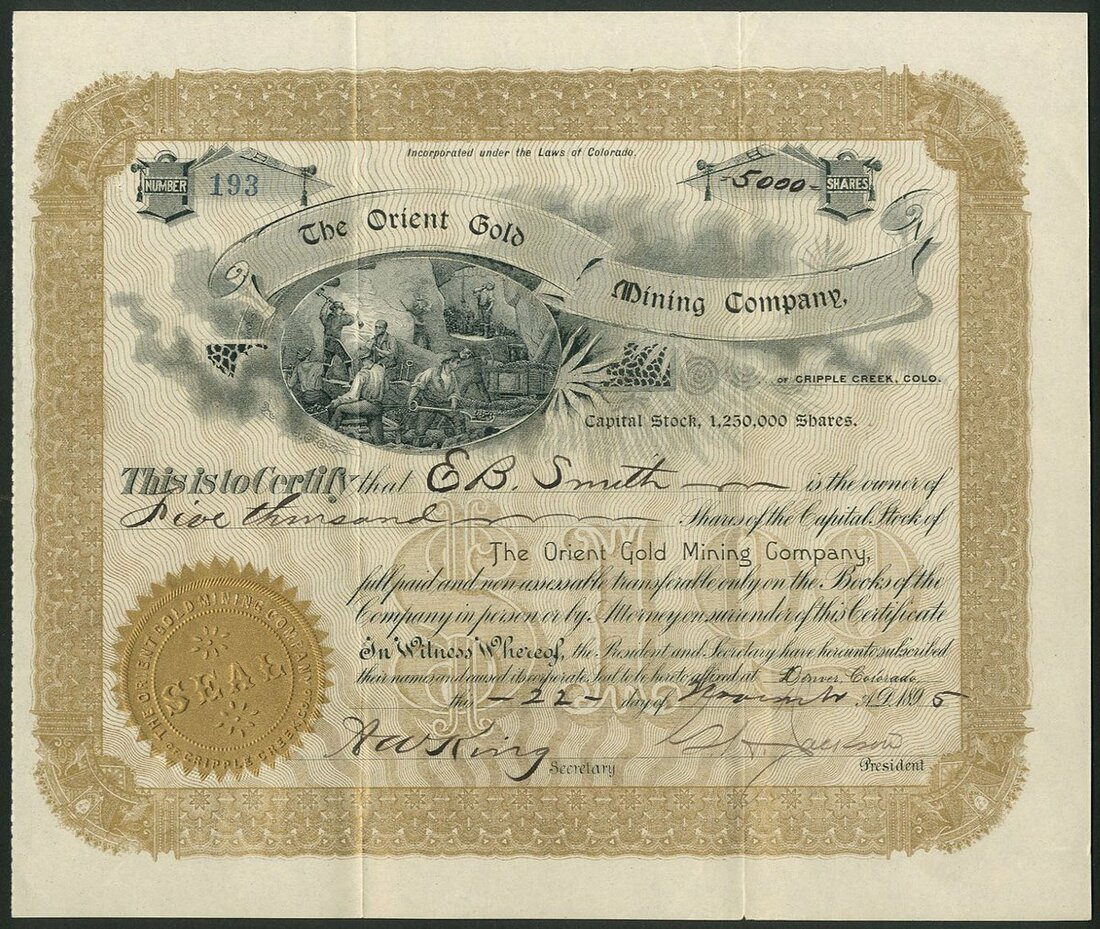 Incorporated under the Laws of Colorado.
NUMBER 193
-5000- SHARES
The Orient Gold
Mining Company,
OF CRIPPLE CREEK, COLO.
Capital Stock, 1,250,000 Shares.
This is to Certify that E.B. Smith is the owner of
Five thousand Shares of the Capital Stock of
The Orient Gold Mining Company,
full paid and non assessable transferable only on the Books of the
Company in person or by Attorney on surrender of this Certificate
In Witness Whereof, the President and Secretary have hereunto subscribed
their names and caused its corporate seal to be hereto affixed at Denver, Colorado,
this -22- day of November A.D. 1895
A W King Secretary
Jackson President
THE ORIENT GOLD MINING COMPANY
SEAL
OF CRIPPLE CREEK, COLO.